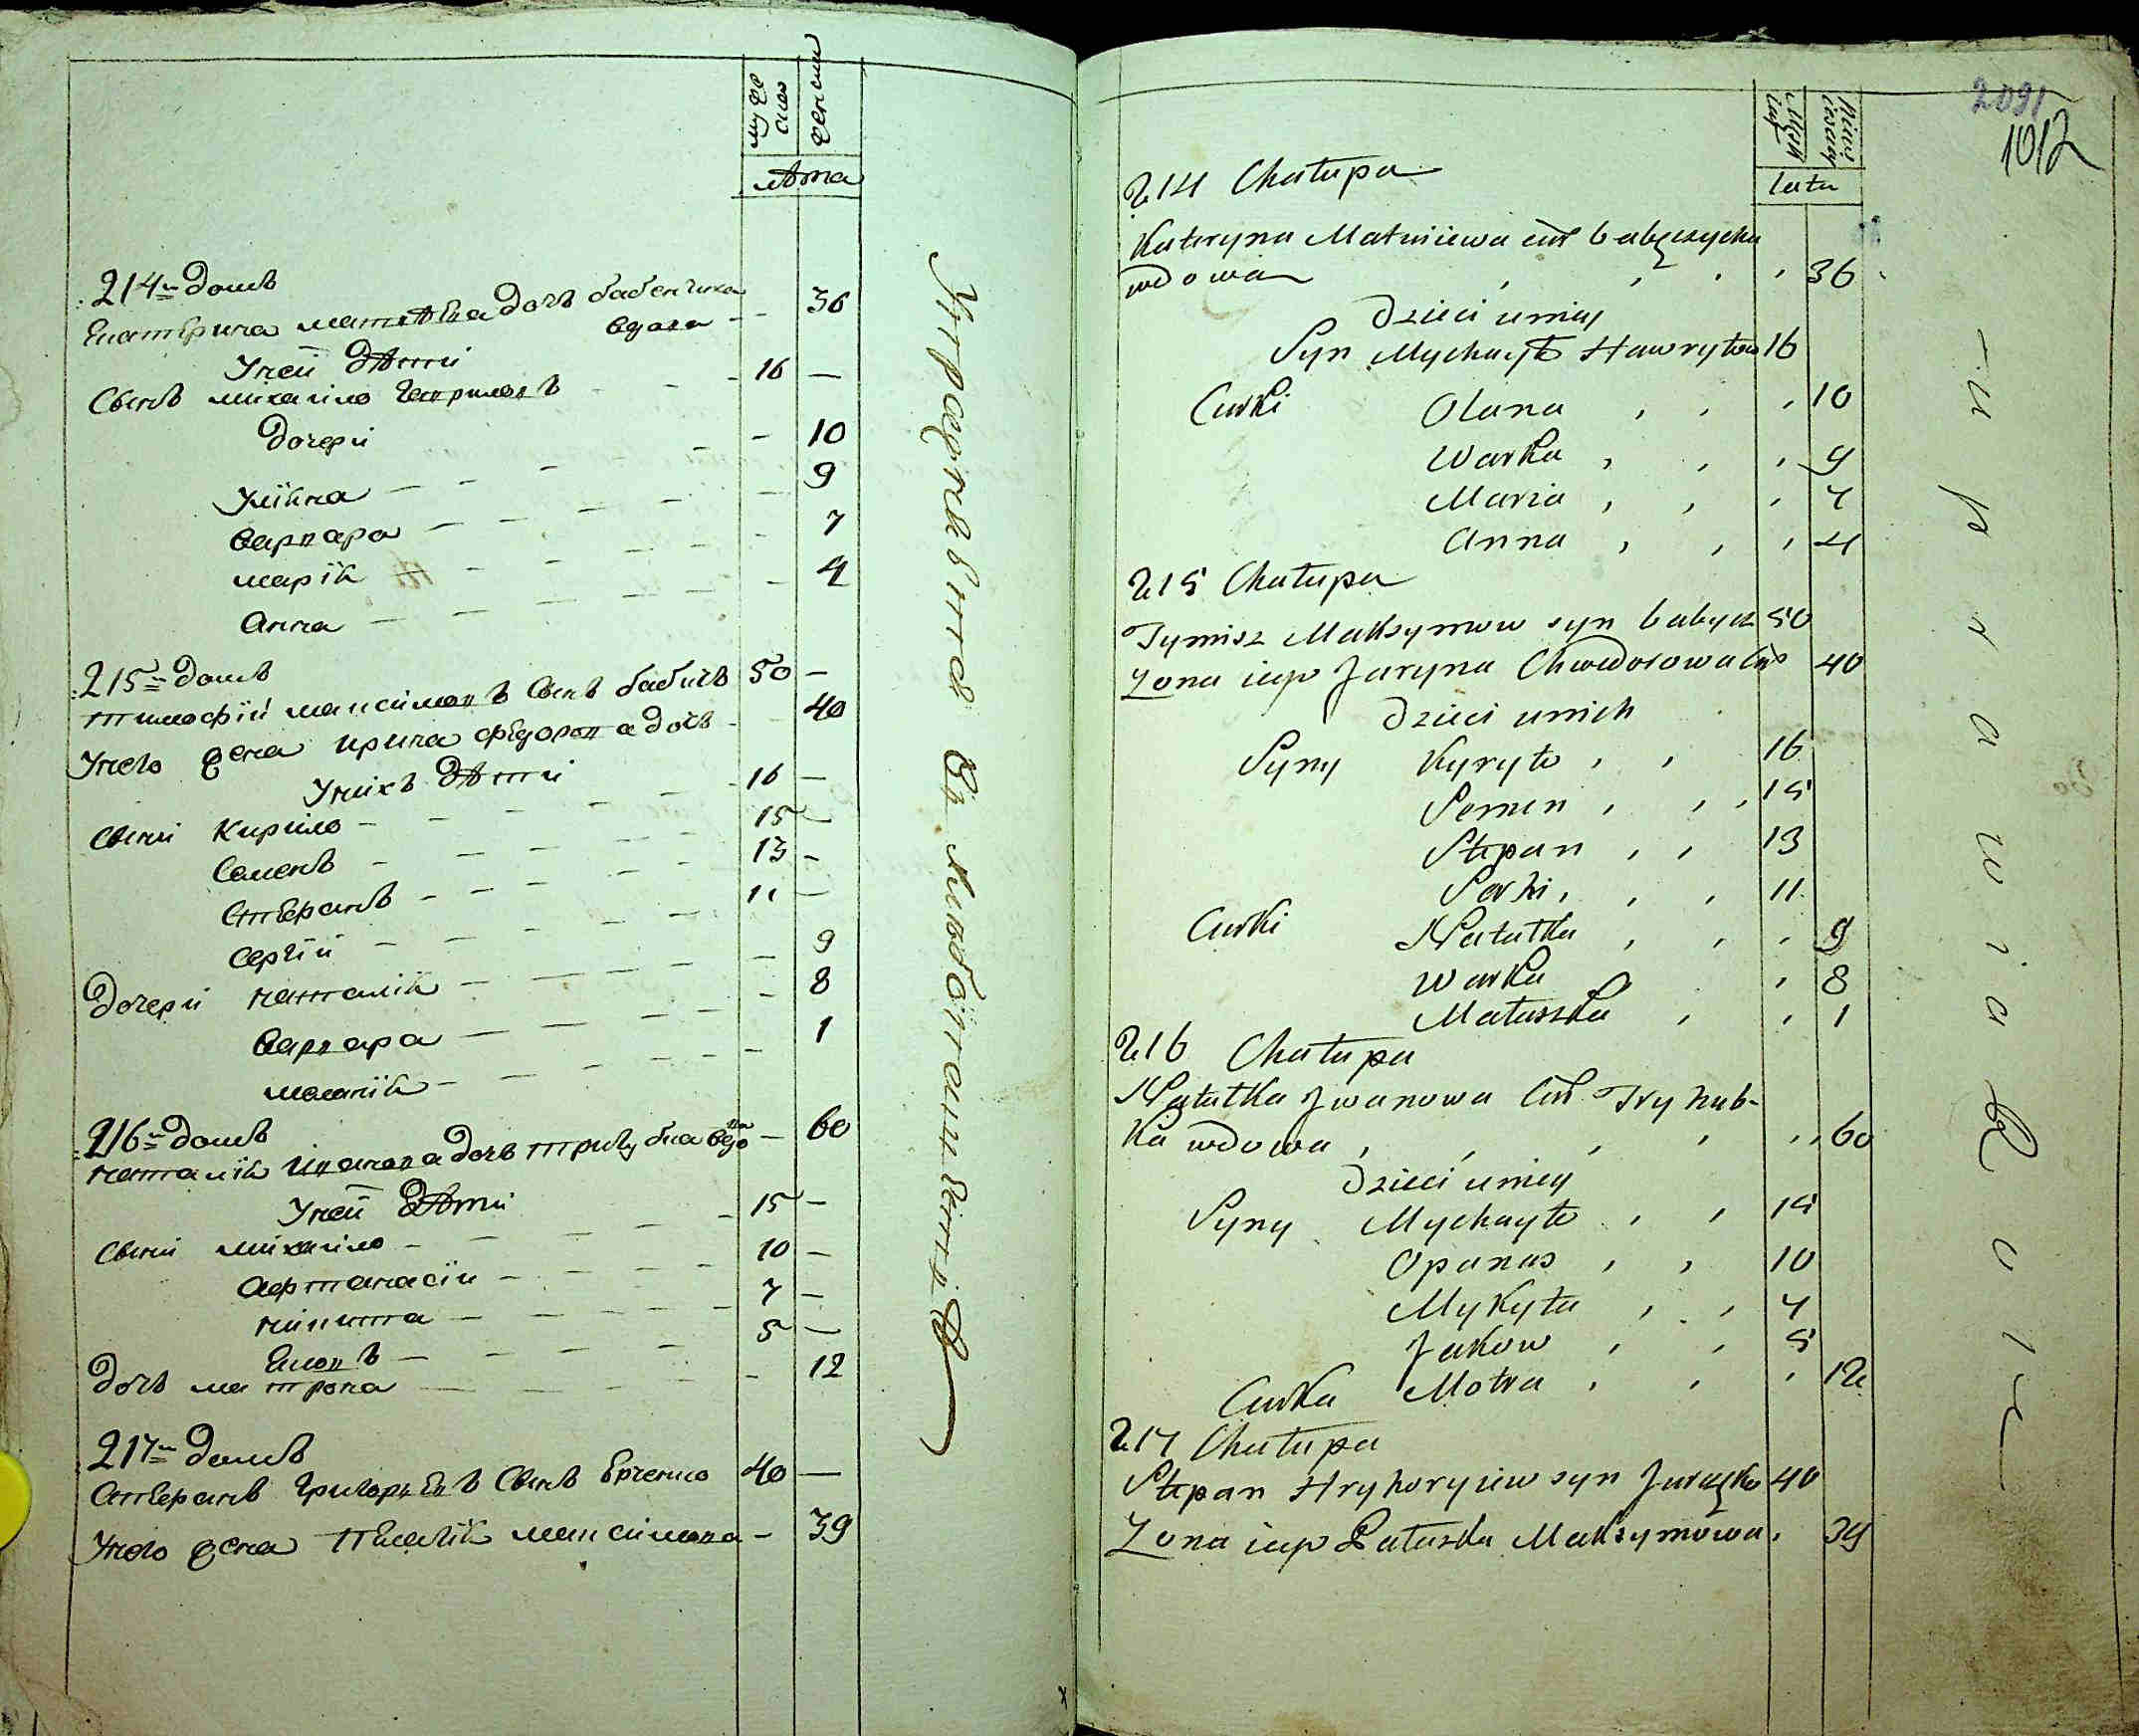 мужеска
женска
лѣта
214й домъ
Екатерина матвѣева дочь бабенчиха
вдова - - 36
Унеи дѣти
Сынъ михайло гавриловъ - - - 16 —
дочери
Улияна - - - 10
варвара - - - 9
марія - - - 7
анна - - - 4
215й домъ
тимофій максимовъ сынъ бабичъ 50 —
Унего жена ирина федорова дочь - 40
Унихъ дѣти
Сыни Кирило - - - 16 —
Семенъ - - - 15 —
Стефанъ - - - 13 -
Сергій - - - 11 —
Дочери наталія - - - 9
варвара - - - 8
маланія - - - 1
216й домъ
наталія иванова дочь тригубка вдова — 60
Унеи дѣти
Сыни михайло - - - 15 —
афтанасій - - - 10 —
никита - - - 7 —
Яковъ - - - 5 —
Дочь матрона - - - 12
217й домъ
Стефанъ григорьевъ сынъ 40 —
Унего жена пелагія максимова - 39
2091
1012
Męsk
iey
Lata
214 Chałupa
Kateryna Matwiiewa cur babęczycha
wdowa , , , , 36
Dzieci uniey
Syn Mychayło Hawryłow 16
Curki Olana , , , 10
Warka , , , 9
Maria , , , 7
Anna , , , 4
215 Chałupa
Tymisz Maksymow syn babycz 50
Zona iego Jaryna Chwedorowa cur 40
Dzieci unich
Syny Kyryło , , 16
Semen , , , 15
Stepan , , 13
Serhi , , , 11
Curki Natałka , , , 9
Warka , 8
Małaszka , , 1
216 Chałupa
Natałka Jwanowa Cur Tryhub-
ka wdowa , , , , ,, 60
Dzieci uniey
Syny Mychayło , , 15
Opanas , , 10
Mykyta , , 7
Jakow , , 5
Curka Motra , , , 12
217 Chałupa
Stepan Hryhoryiew syn Juraszko 40
Zona iego Pałaszka Maksymowa , 39